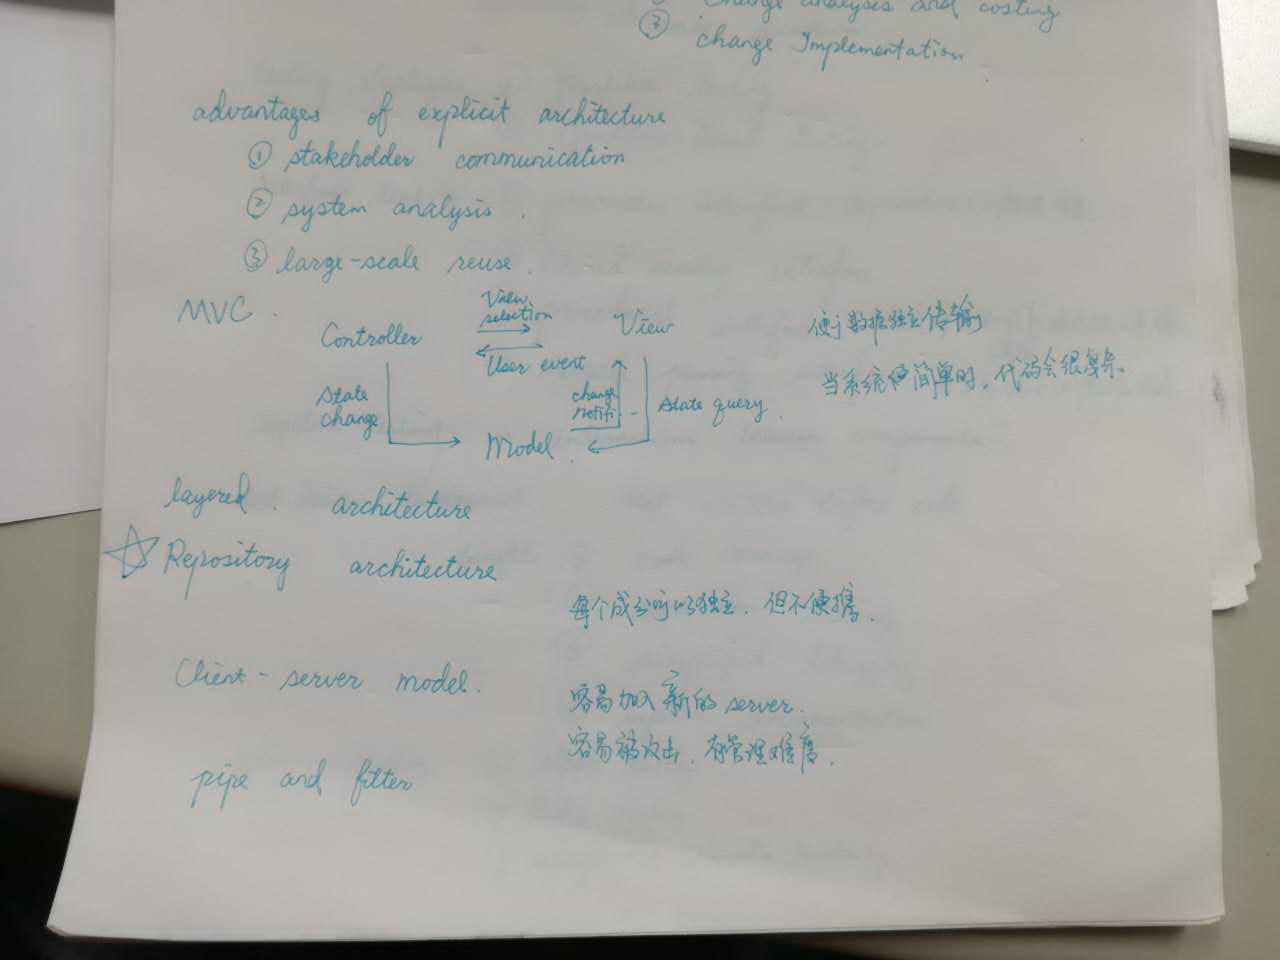 change analysis and costing
③ change Implementation
advantages of explicit architecture
① stakeholder communication
② system analysis.
③ large-scale reuse.
MVC.
View selection
Controller
View
User event
State change
change notifi-
State query.
Model.
使数据独立传输
当系统很简单时，代码会很复杂
layered architecture
☆ Repository architecture
每个成分可以独立，但不便携.
Client-server model.
容易加入新的 server.
容易被攻击，有管理难度.
pipe and filter